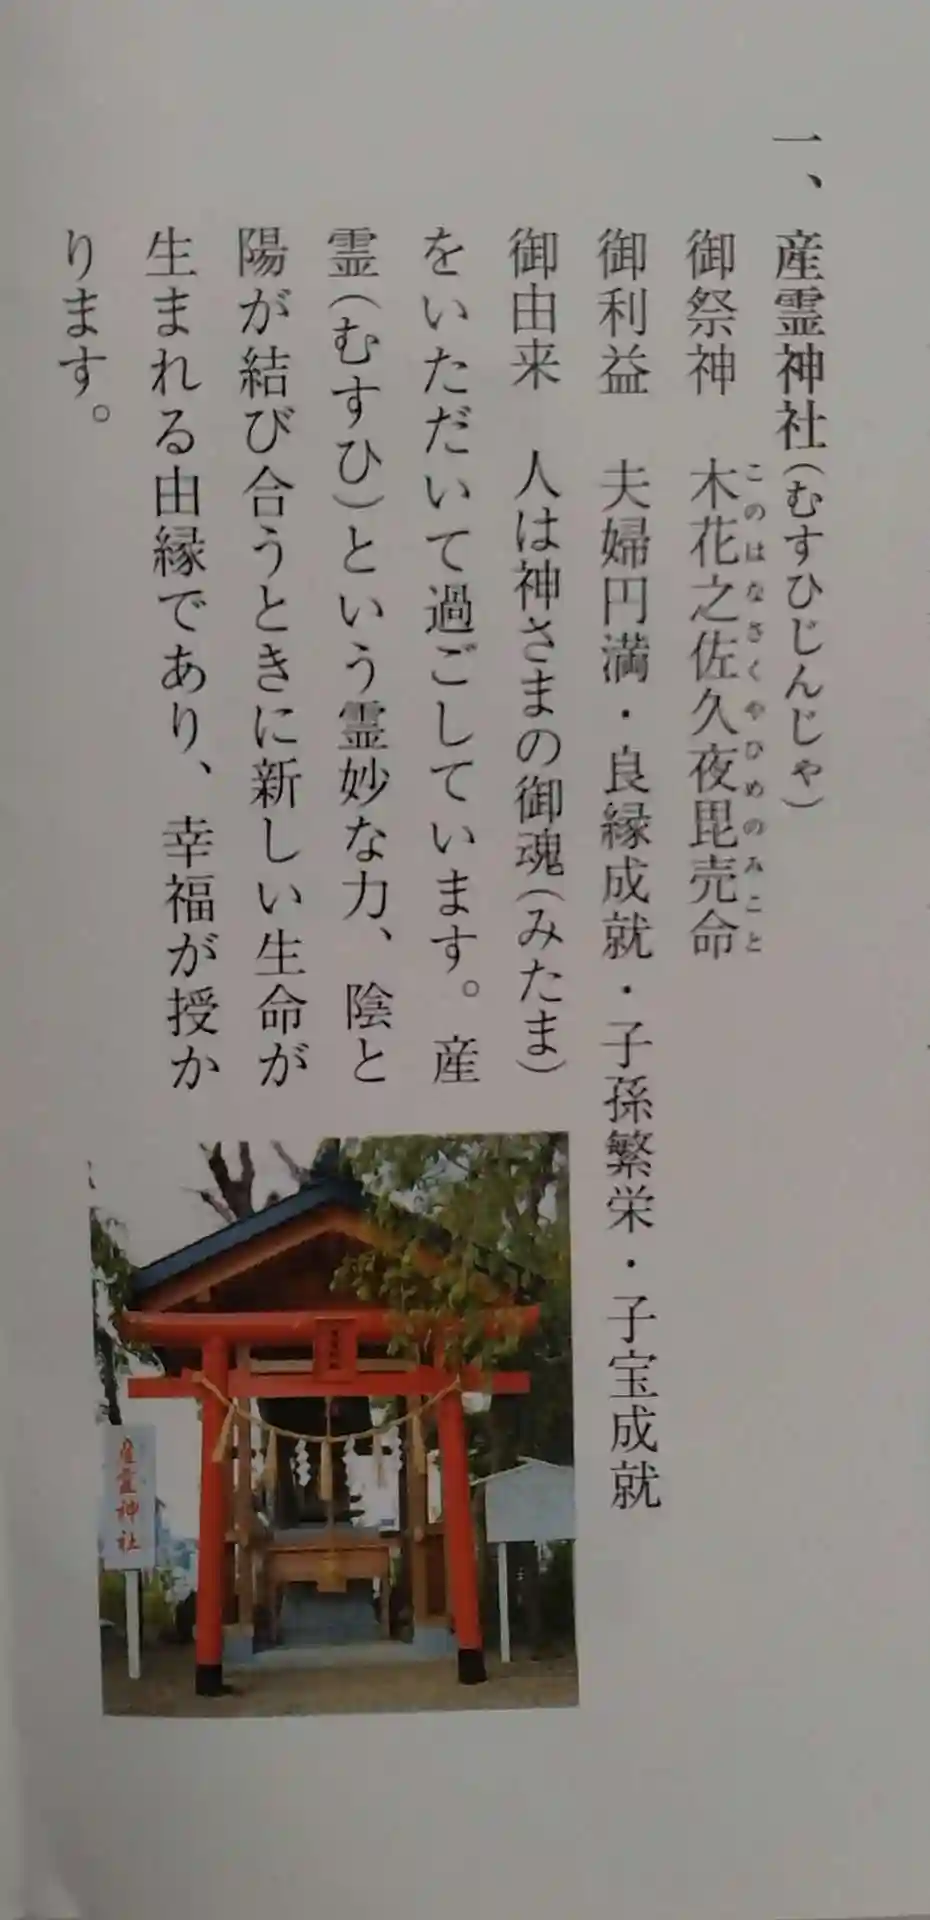 一、産霊神社(むすひじんじゃ)
御祭神　木花之佐久夜毘売命
このはなさくやひめのみこと
御利益　夫婦円満・良縁成就・子孫繁栄・子宝成就
御由来　人は神さまの御魂(みたま)
をいただいて過ごしています。産
霊(むすひ)という霊妙な力、陰と
陽が結び合うときに新しい生命が
生まれる由縁であり、幸福が授か
ります。
産霊神社